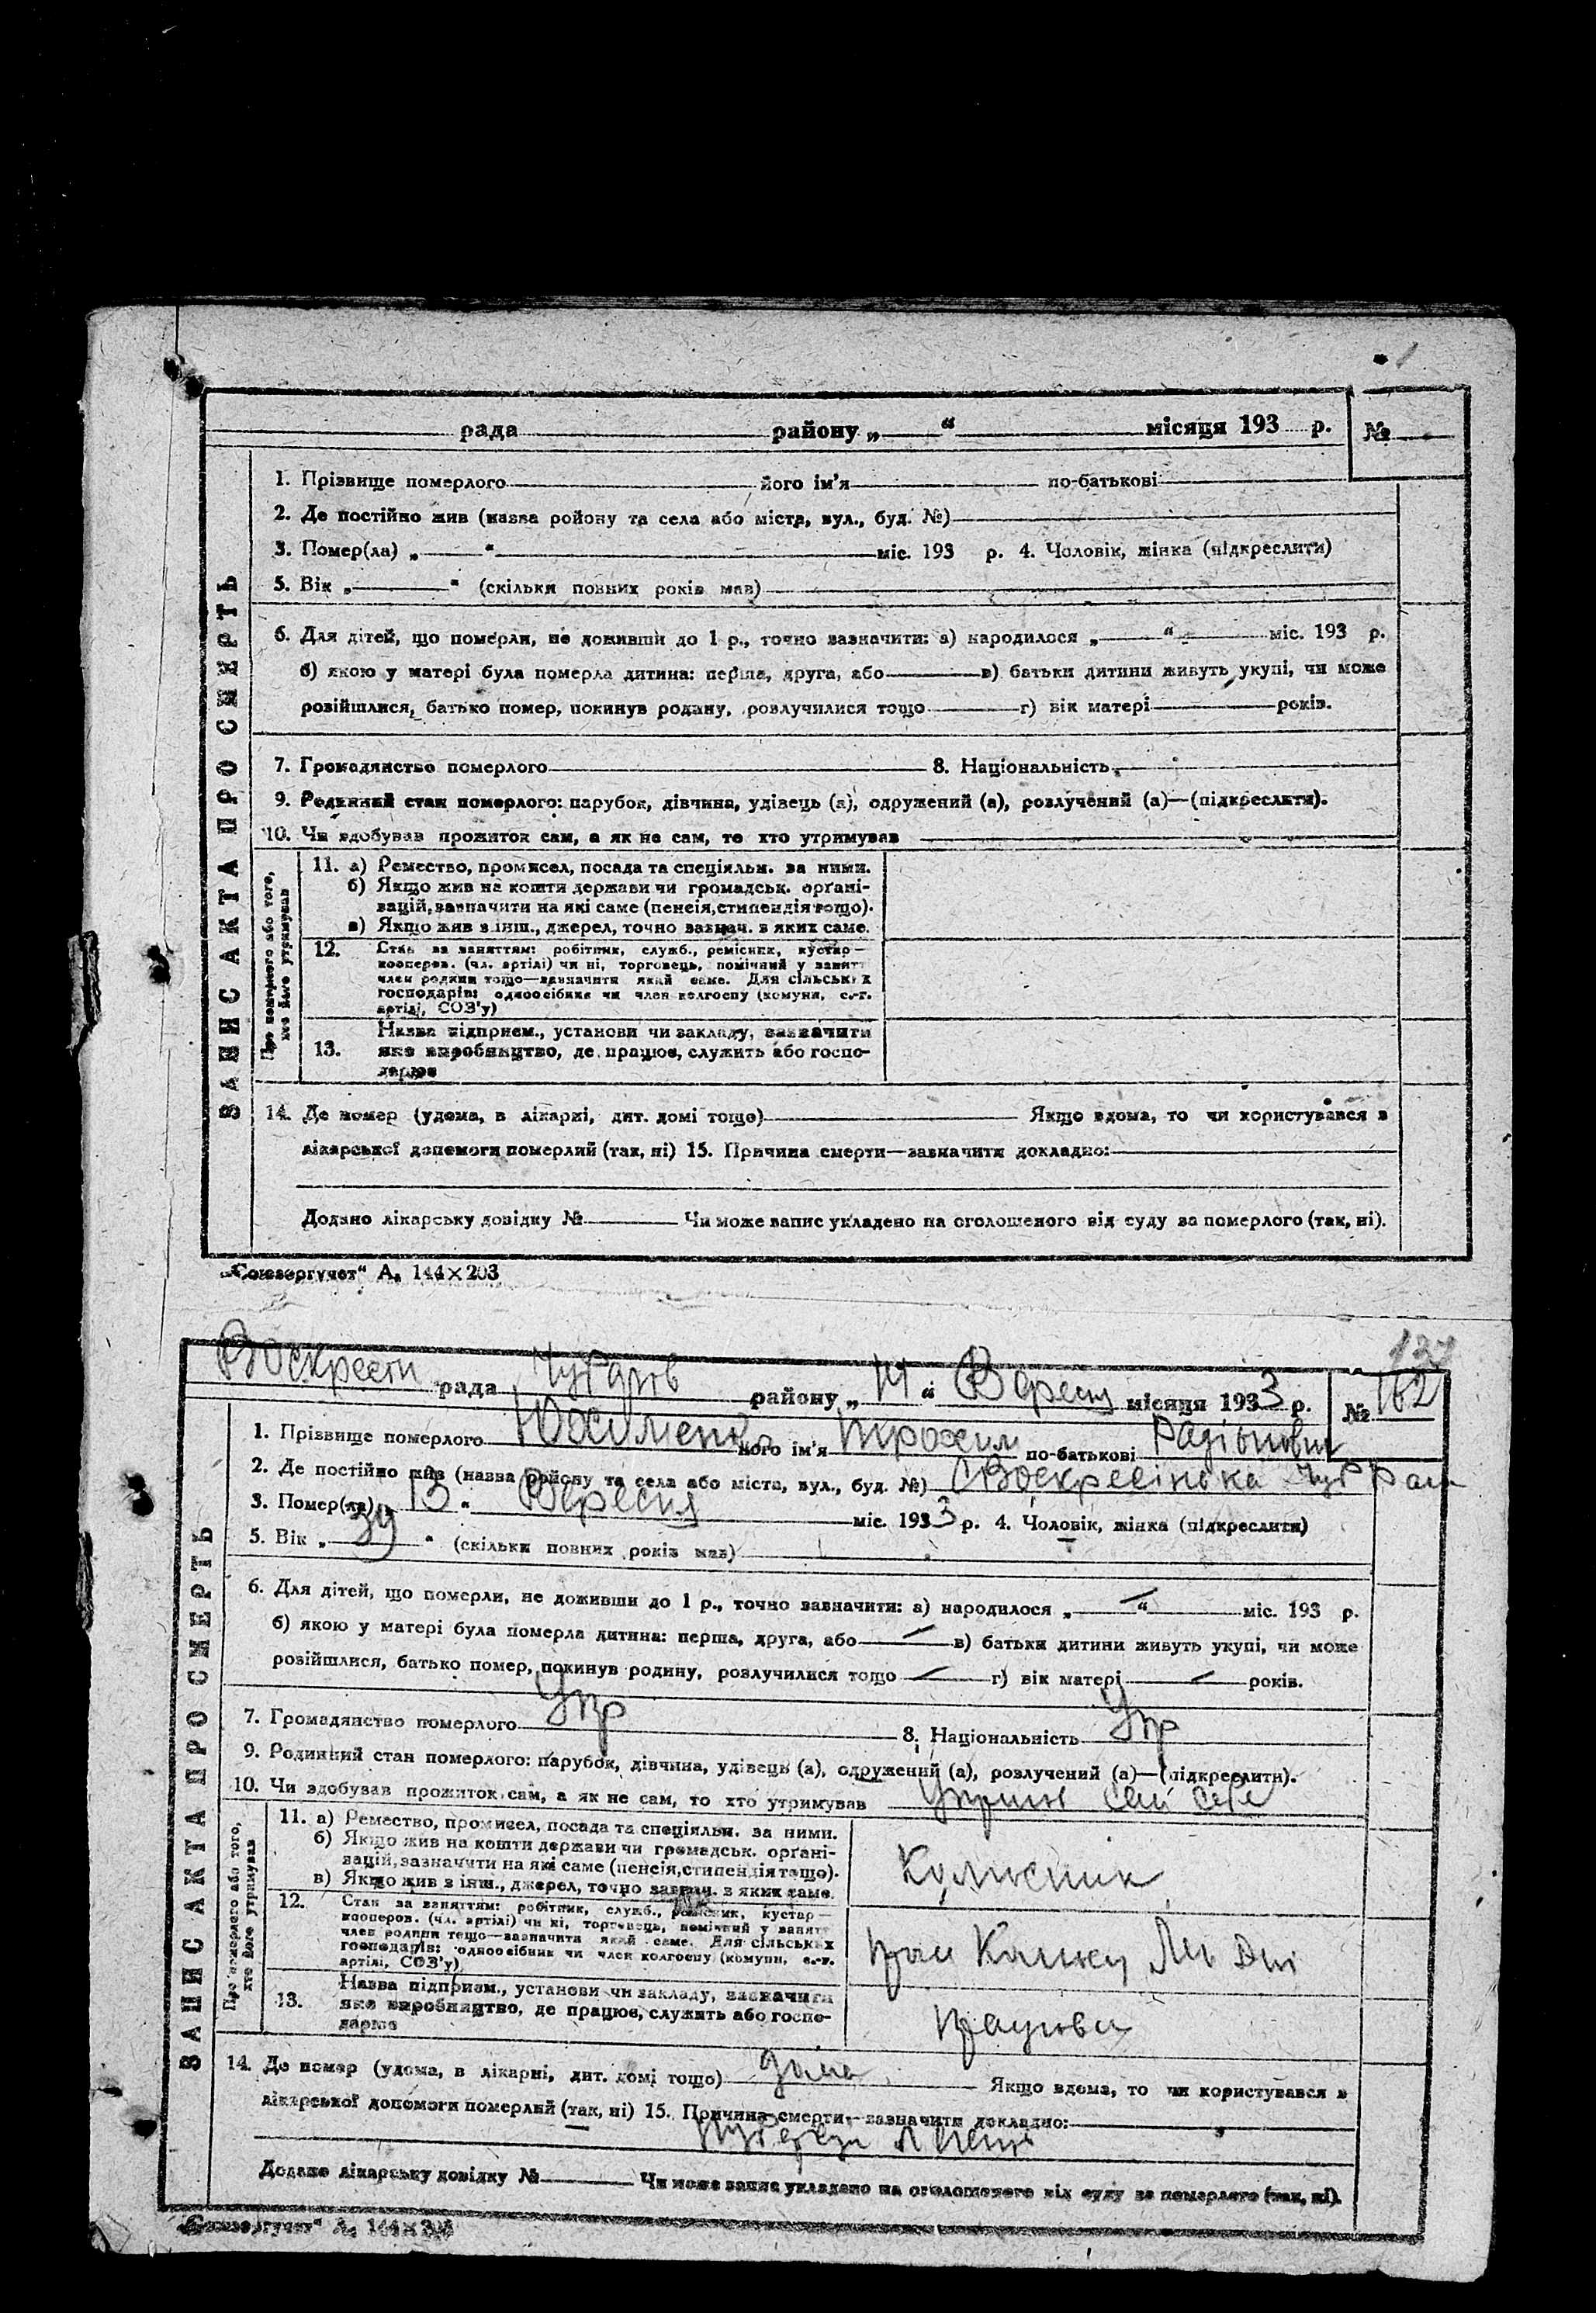 1
рада району „ “ місяця 193 р. №
1. Прізвище померлого його ім'я по-батькові
2. Де постійно жив (назва ройону та села або міста, вул., буд. №)
3. Помер(ла) „ “ міс. 193 р. 4. Чоловік, жінка (підкреслити)
5. Вік „ “ (скільки повних років мав)
6. Для дітей, що померли, не доживши до 1 р., точно зазначити: а) народилося „ “ міс. 193 р.
б) якою у матері була померла дитина: перша, друга, або в) батьки дитини живуть укупі, чи може
розійшлися, батько помер, покинув родину, розлучилися тощо г) вік матері років.
7. Громадянство померлого 8. Національність
9. Родинний стан померлого: парубок, дівчина, удівець (а), одружений (а), розлучений (а)—(підкреслити).
10. Чи здобував прожиток сам, а як не сам, то хто утримував
Про померлого або того, хто його утримував
11. а) Ремество, промисел, посада та спеціяльн. за ними.
б) Якщо жив на кошти держави чи громадськ. орґані-
зацій, зазначити на які саме (пенсія, стипендія тощо).
в) Якщо жив з інш., джерел, точно зазнач. з яких саме.
12. Стан за заняттям: робітник, служб., ремісник, кустар—
кооперов. (чл. артілі) чи ні, торговець, помічний у занятт
член родини тощо—зазначити який саме. Для сільських
господарів: одноосібник чи член колгоспу (комуни, с.-г.
артілі, СОЗ'у)
13. Назва підприєм., установи чи закладу, зазначити
яке виробництво, де працює, служить або госпо-
дарює
14. Де помер (удома, в лікарні, дит. домі тощо) Якщо вдома, то чи користувався з
лікарської допомоги померлий (так, ні) 15. Причина смерти—зазначити докладно:
Додано лікарську довідку № Чи може запис укладено на оголошеного від суду за померлого (так, ні).
ЗАПИС АКТА ПРО СМЕРТЬ
„Союзоргучет“ А₅ 144×203
137
рада району „14“ Вересня місяця 1933 р. № 162
1. Прізвище померлого його ім'я Трохим по-батькові
2. Де постійно жив (назва ройону та села або міста, вул., буд. №)
3. Помер(ла) „13“ Вересня міс. 1933 р. 4. Чоловік, жінка (підкреслити)
5. Вік „39“ (скільки повних років мав)
6. Для дітей, що померли, не доживши до 1 р., точно зазначити: а) народилося „—“ міс. 193 р.
б) якою у матері була померла дитина: перша, друга, або — в) батьки дитини живуть укупі, чи може
розійшлися, батько помер, покинув родину, розлучилися тощо — г) вік матері — років.
7. Громадянство померлого Укр 8. Національність Укр
9. Родинний стан померлого: парубок, дівчина, удівець (а), одружений (а), розлучений (а)—(підкреслити).
10. Чи здобував прожиток сам, а як не сам, то хто утримував сам себе
Про померлого або того, хто його утримував
11. а) Ремество, промисел, посада та спеціяльн. за ними.
б) Якщо жив на кошти держави чи громадськ. орґані-
зацій, зазначити на які саме (пенсія, стипендія тощо).
в) Якщо жив з інш., джерел, точно зазнач. з яких саме.
12. Стан за заняттям: робітник, служб., ремісник, кустар—
кооперов. (чл. артілі) чи ні, торговець, помічний у занятт
член родини тощо—зазначити який саме. Для сільських
господарів: одноосібник чи член колгоспу (комуни, с.-г.
артілі, СОЗ'у)
13. Назва підприєм., установи чи закладу, зазначити
яке виробництво, де працює, служить або госпо-
дарює
14. Де помер (удома, в лікарні, дит. домі тощо) дома Якщо вдома, то чи користувався з
лікарської допомоги померлий (так, ні) 15. Причина смерти—зазначити докладно:
Додано лікарську довідку № Чи може запис укладено на оголошеного від суду за померлого (так, ні).
ЗАПИС АКТА ПРО СМЕРТЬ
„Союзоргучет“ А₅ 144×203